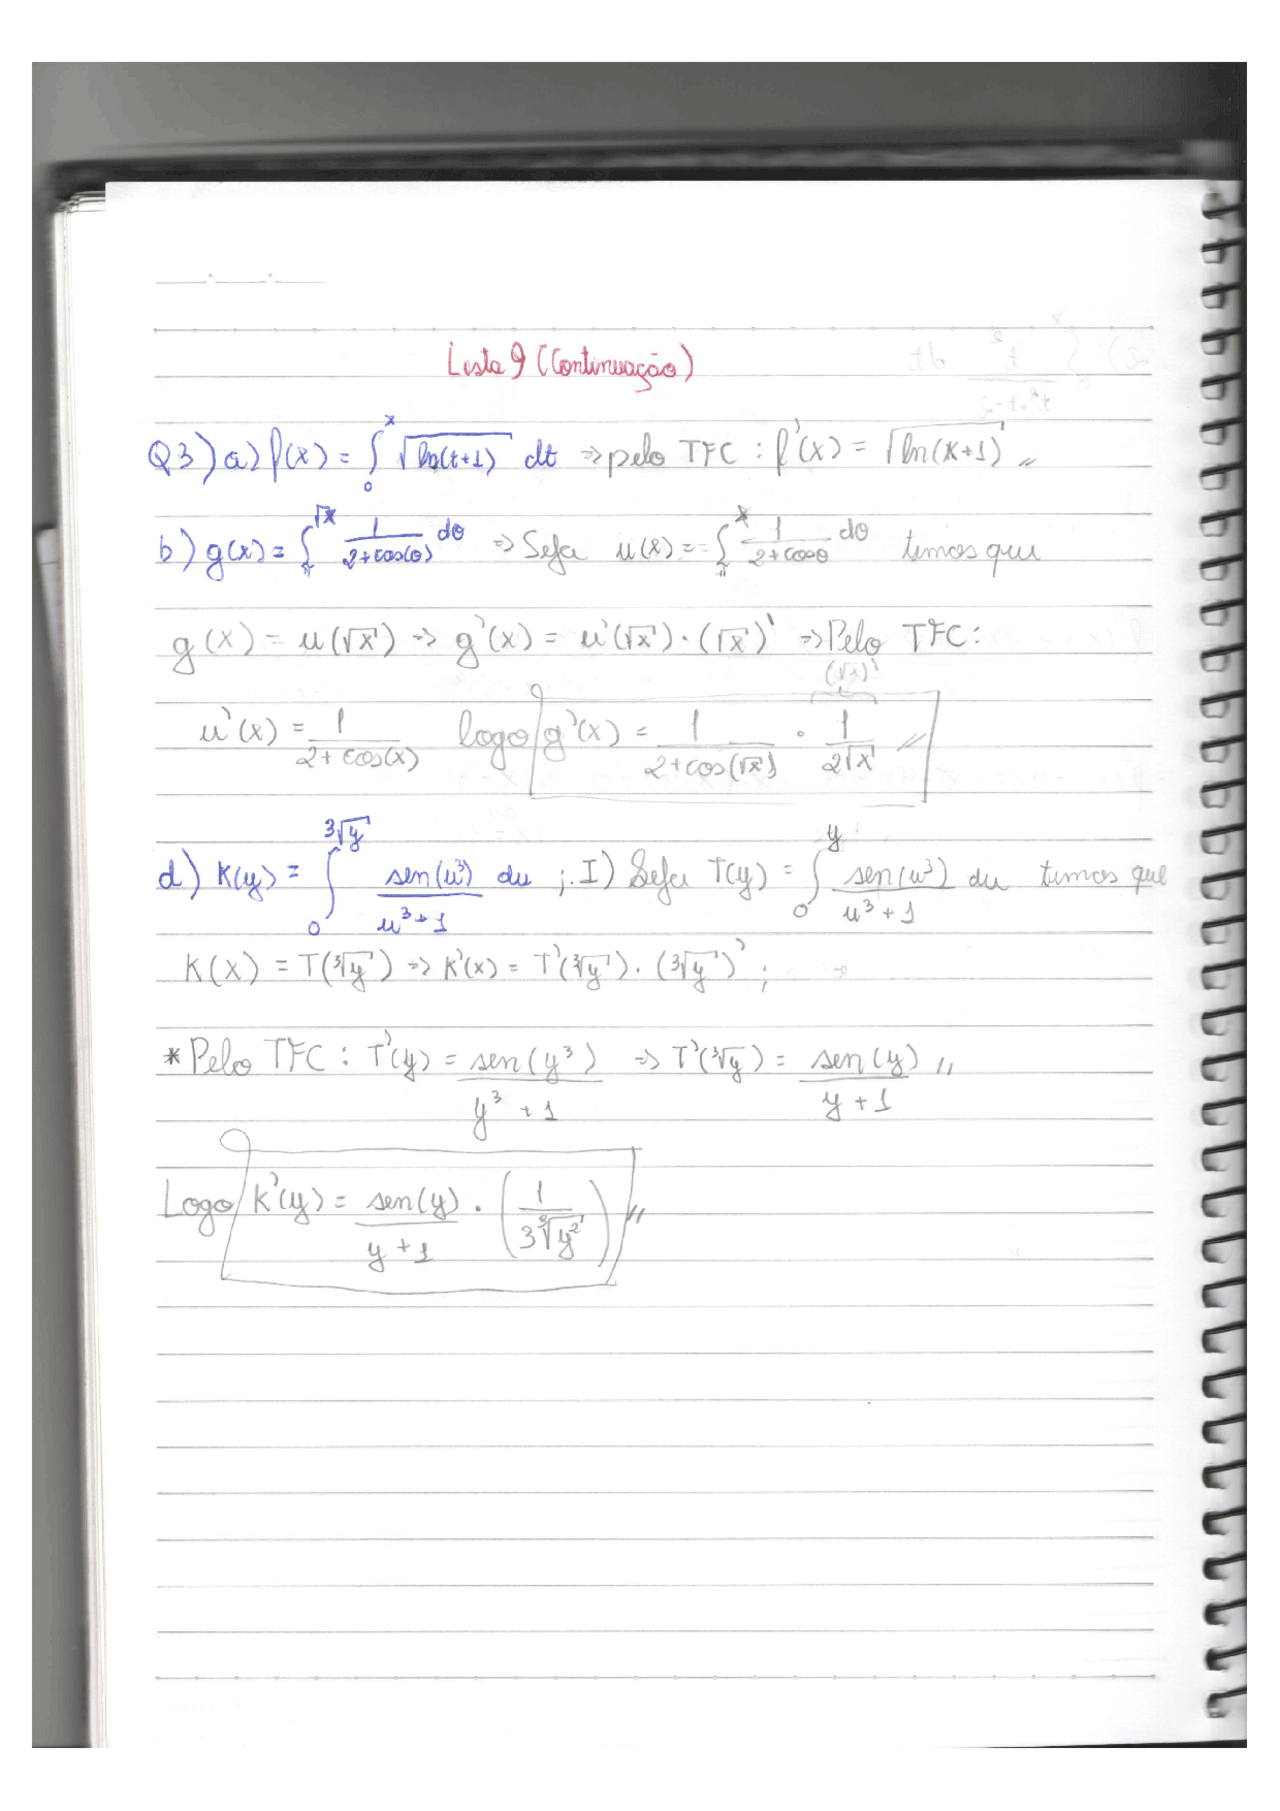 Lista 9 (Continuação)
Q3) a) f(x) = ∫₀ˣ √(ln(t+1)) dt => pelo TFC : f'(x) = √(ln(x+1)) //
b) g(x) = ∫_π^√x 1/(2+cos(θ)) dθ => Seja u(x) = ∫_π^x 1/(2+cosθ) dθ temos que
g(x) = u(√x) => g'(x) = u'(√x) · (√x)' => Pelo TFC:
(√x)'
u'(x) = 1/(2+cos(x)) logo g'(x) = 1/(2+cos(√x)) · 1/(2√x) //
d) K(y) = ∫₀^∛y sen(u³)/(u³+1) du ;. I) Seja T(y) = ∫₀^y sen(u³)/(u³+1) du temos que
K(x) = T(∛y) => K'(x) = T'(∛y) · (∛y)' ;
* Pelo TFC : T'(y) = sen(y³)/(y³+1) => T'(∛y) = sen(y)/(y+1) //
Logo K'(y) = sen(y)/(y+1) · (1/(3∛y²)) //